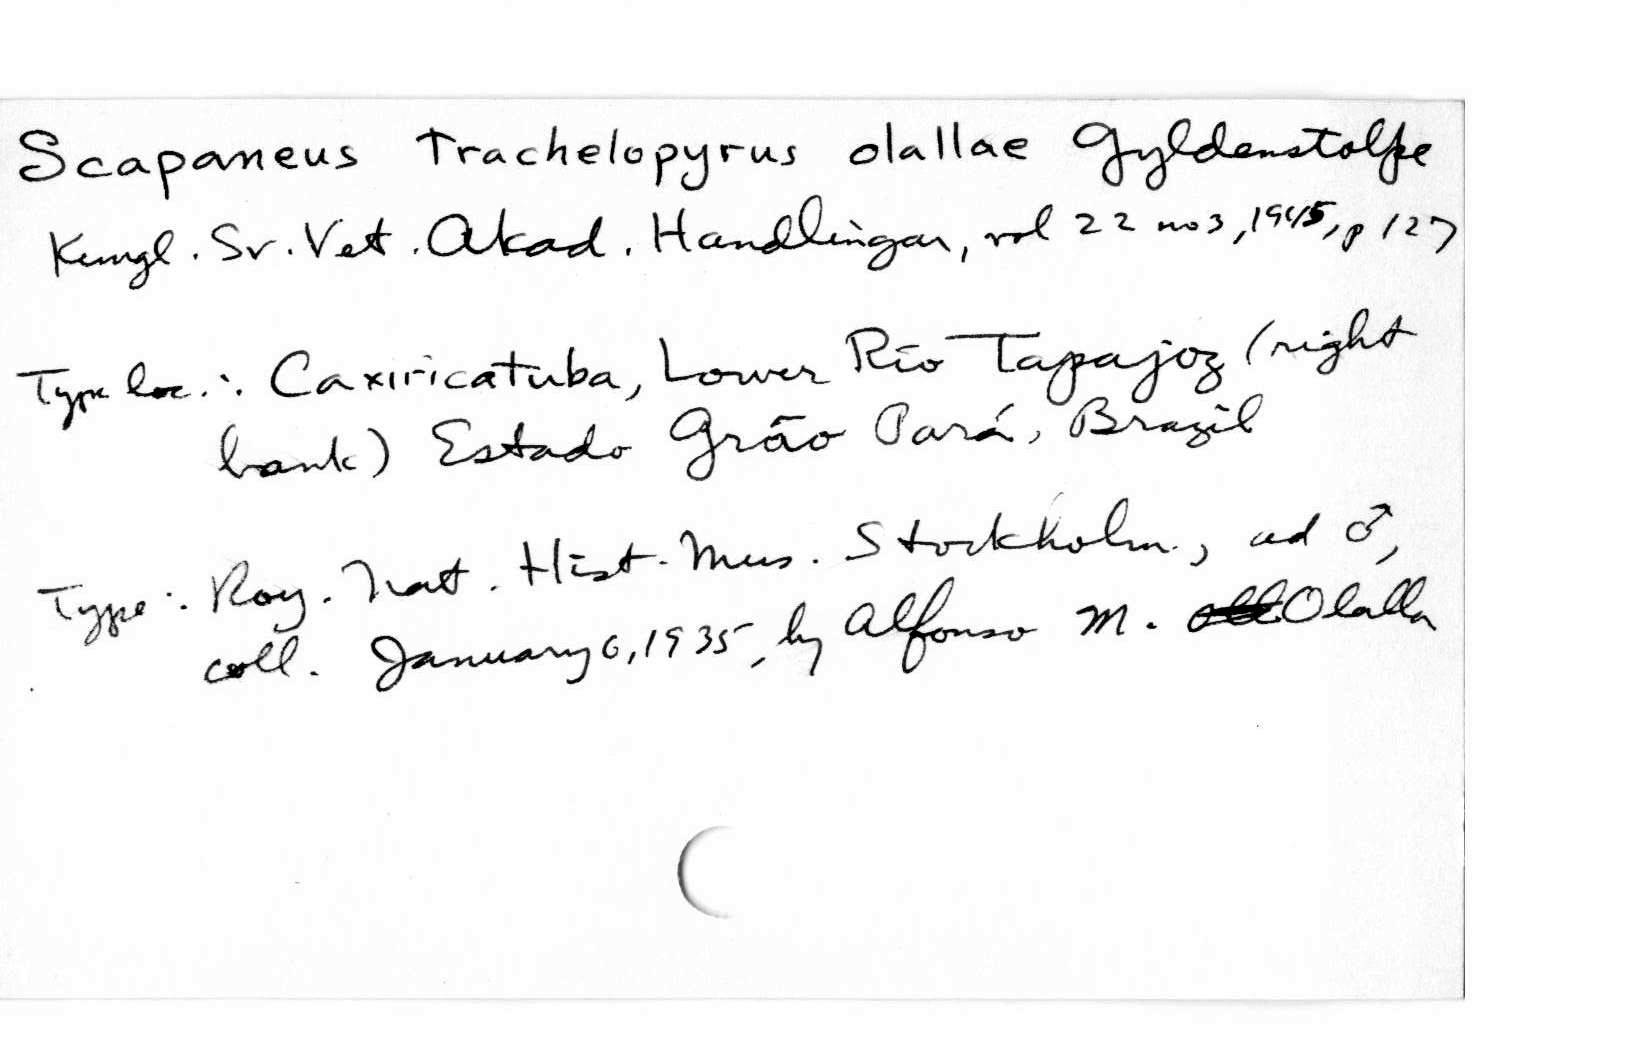 Scapaneus trachelopyrus olallae Gyldenstolpe
Kungl. Sv. Vet. Akad. Handlingar, vol 22 no 3, 1945, p 127
Type loc.: Caxiricatuba, Lower Rio Tapajoz (right
bank) Estado Grão Pará, Brazil
Type: Roy. Nat. Hist. Mus. Stockholm, ad ♂,
coll. January 6, 1935, by Alfonso M. Olalla